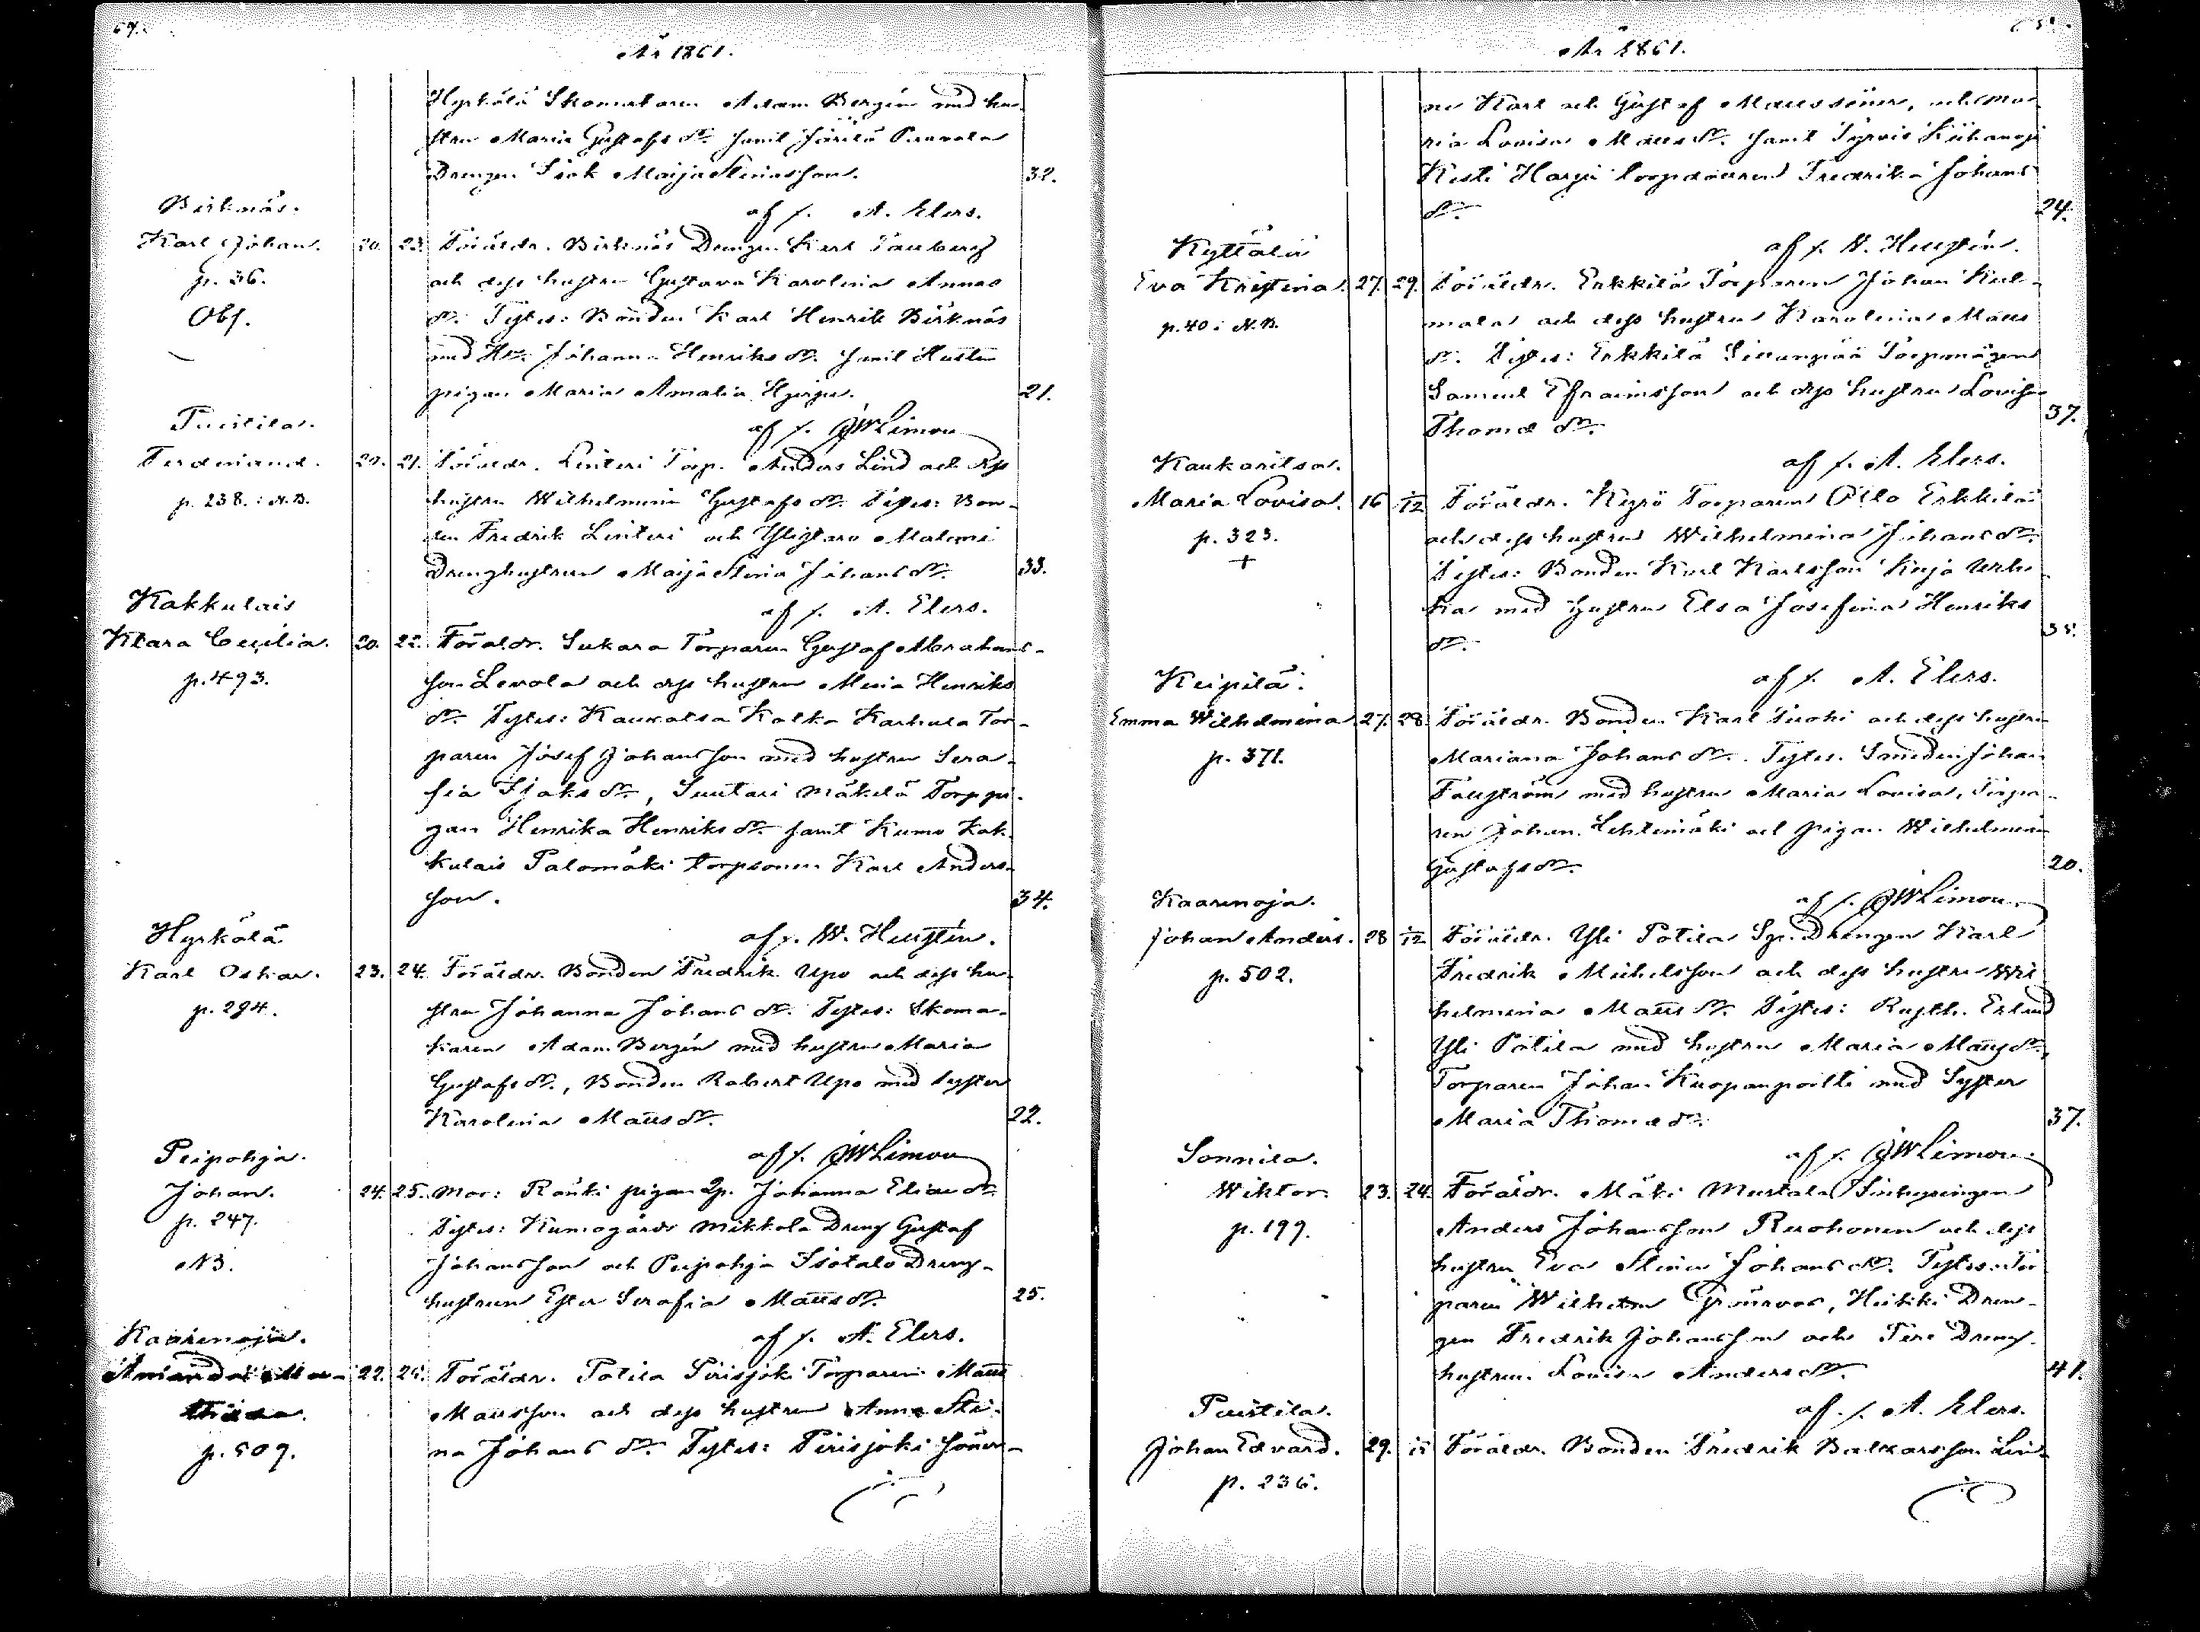 År 1861.
Hyrkölä Skomakaren Adam Bergén med hu-
stru Maria Gustafs dr. samt Järilä Paavola
Drengen Isak Maija Stinasson. 32.
af f. A. Elers.
Birknäs.
Karl Johan. 20. 23. Föräldr. Birknäs Drengen Karl Tauberg
p. 36. och dess hustru Gustava Karolina Annas
Obs. dr. Testes: Bonden Karl Henrik Birknäs
med Hu. Johanna Henriks dr. samt
pigan Maria Amalia 21.
af f. JWLimon
Puistila.
Ferdinand. 20. 21. Föräldr. Linteri Torp. Anders Lind och dess
p. 238. i N.B. hustru Wilhelmina Gustafs dr. Testes: Bon-
den Fredrik Linteri och Ylistaro
Drenghustrun Maija Stina Johans dr. 33.
af f. A. Elers.
Kakkulais
Klara Cecilia. 20. 22. Föräldr. Sukara Torparen Gustaf Abrahams-
p. 493. son Levola och dess hustru Maria Henriks
dr. Testes: Kauvatsa Kalka Karhula Tor-
paren Josef Johansson med hustru Sera-
fia Isaks dr, Suutari Mäkelä Torppi-
gan Henrika Henriks dr samt Kumo Kak-
kulais Palomäki torpsonen Karl Anders-
son. 34.
af f. W. Heustén.
Hyrkölä
Karl Oskar. 23. 24. Föräldr. Bonden Fredrik Upo och dess hu-
p. 294. stru Johanna Johans dr. Testes: Skoma-
karen Adam Bergén med hustru Maria
Gustafs dr., Bonden Robert Upo med syster
Karolina Matts dr. 22.
af f. JWLimon
Peipohja.
Johan. 24. 25. Mor: Ronki pigan Johanna Elias dr.
p. 247. Testes: Kumogårds Mikkola Dreng Gustaf
NB. Johansson och Peipohja Isotalo Dreng-
hustrun Ester Serafia Matts dr. 25.
af f. A. Elers.
Kaarenoja.
Amanda Ma- 22. Föräldr. Potila Pirisjoki Torparen Matts
thilda. Mattsson och dess hustru Anna Sti-
p. 509. na Johans dr. Testes: Pirisjoki söner-
År 1861.
ne Karl och Gustaf Mattssöner, och Ma-
ria Lovisa Matts dr. samt Tyrvis
Kesti Harju torpdottren Fredrika Johans
dr. 24.
af f. W. Heustén.
Kyttälä
Eva Kristina. 27. 29. Föräldr. Erkkilä Torparen Johan Kul-
p. 40 i N.B. mala och dess hustru Karolina Matts
dr. Testes: Erkkilä Torpmågen
Samuel Efraimsson och dess hustru Lovisa
Thomæ dr. 37.
af f. A. Elers.
Kaukaritsa.
Maria Lovisa. 16 1/12 Föräldr. Kyrö Torparen Otto Erkkilä
p. 323. och dess hustru Wilhelmina Johans dr.
+ Testes: Bonden Karl Karlsson Kujo Urhe
med hustru Elsa Josefina Henriks
dr. 35.
af f. A. Elers.
Keipilä.
Emma Wilhelmina 27. 28. Föräldr. Bonden Karl Juohi och dess hustru
p. 371. Mariana Johans dr. Testes. Smeden Johan
Fagström med hustru Maria Lovisa, Torpa-
ren Johan Lehtimäki och pigan Wilhelmina
Gustafs dr. 20.
af f. JWLimon
Kaarenoja.
Johan Anders. 28 1/12 Föräldr. Yli Potila Drengen Karl
p. 502. Fredrik Michelsson och dess hustru Wil-
helmina Matts dr. Testes: Rusth. Erland
Yli Potila med hustru Maria Matts dr.
Torparen Johan Kuopanpoltti med Syster
Maria Thomæ dr. 37.
af f. JWLimon
Sonnila.
Wiktor. 23. 24. Föräldr. Mäki Mustala Inhysingen
p. 199. Anders Johansson Ruohonen och dess
hustru Eva Stina Johans dr. Testes: Tor-
paren Wilhelm Grönroos, Heikki Dren-
gen Fredrik Johansson och Pere Dreng-
hustrun Lovisa Anders dr. 41.
af f. A. Elers.
Puistila.
Johan Edvard. 29. Föräldr. Bonden Fredrik Baltzarsson Lin-
p. 236.